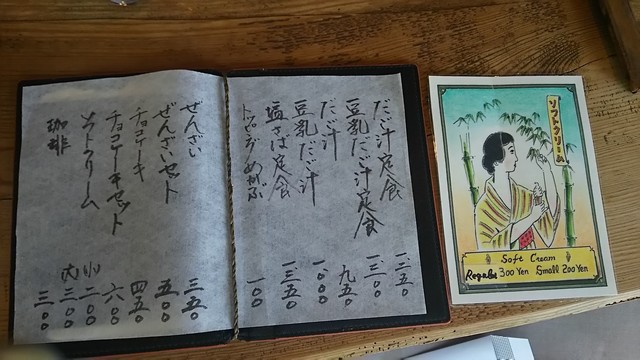 だご汁定食 一、二五〇
豆乳だご汁定食 一、三〇〇
だご汁 九五〇
豆乳だご汁 一、〇〇〇
塩さば定食 一、三五〇
トッピングめかぶ 一〇〇
ぜんざい 三五〇
ぜんざいセット 五〇〇
チョコケーキ 四五〇
チョコケーキセット 六〇〇
ソフトクリーム 小二〇〇
大三〇〇
珈琲 三〇〇
ソフトクリーム
Soft Cream
Regular 300 Yen Small 200 Yen